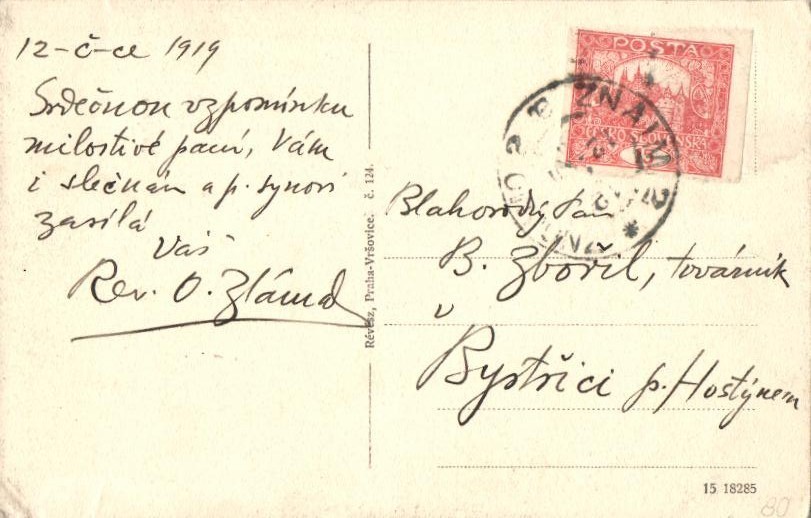 12-č-ce 1919
Srdečnou vzpomínku
milostivé paní, Vám
i slečnám a p. synovi
zasílá
Váš
Rev. O. Zlámal
Révész, Praha-Vršovice. č. 124.
POSTA
ČESKO-SLOVENSKÁ
ZNAIM
Blahorodý Pan
B. Zbořil, továrník
v
Bystřici p. Hostýnem
15 18285
80